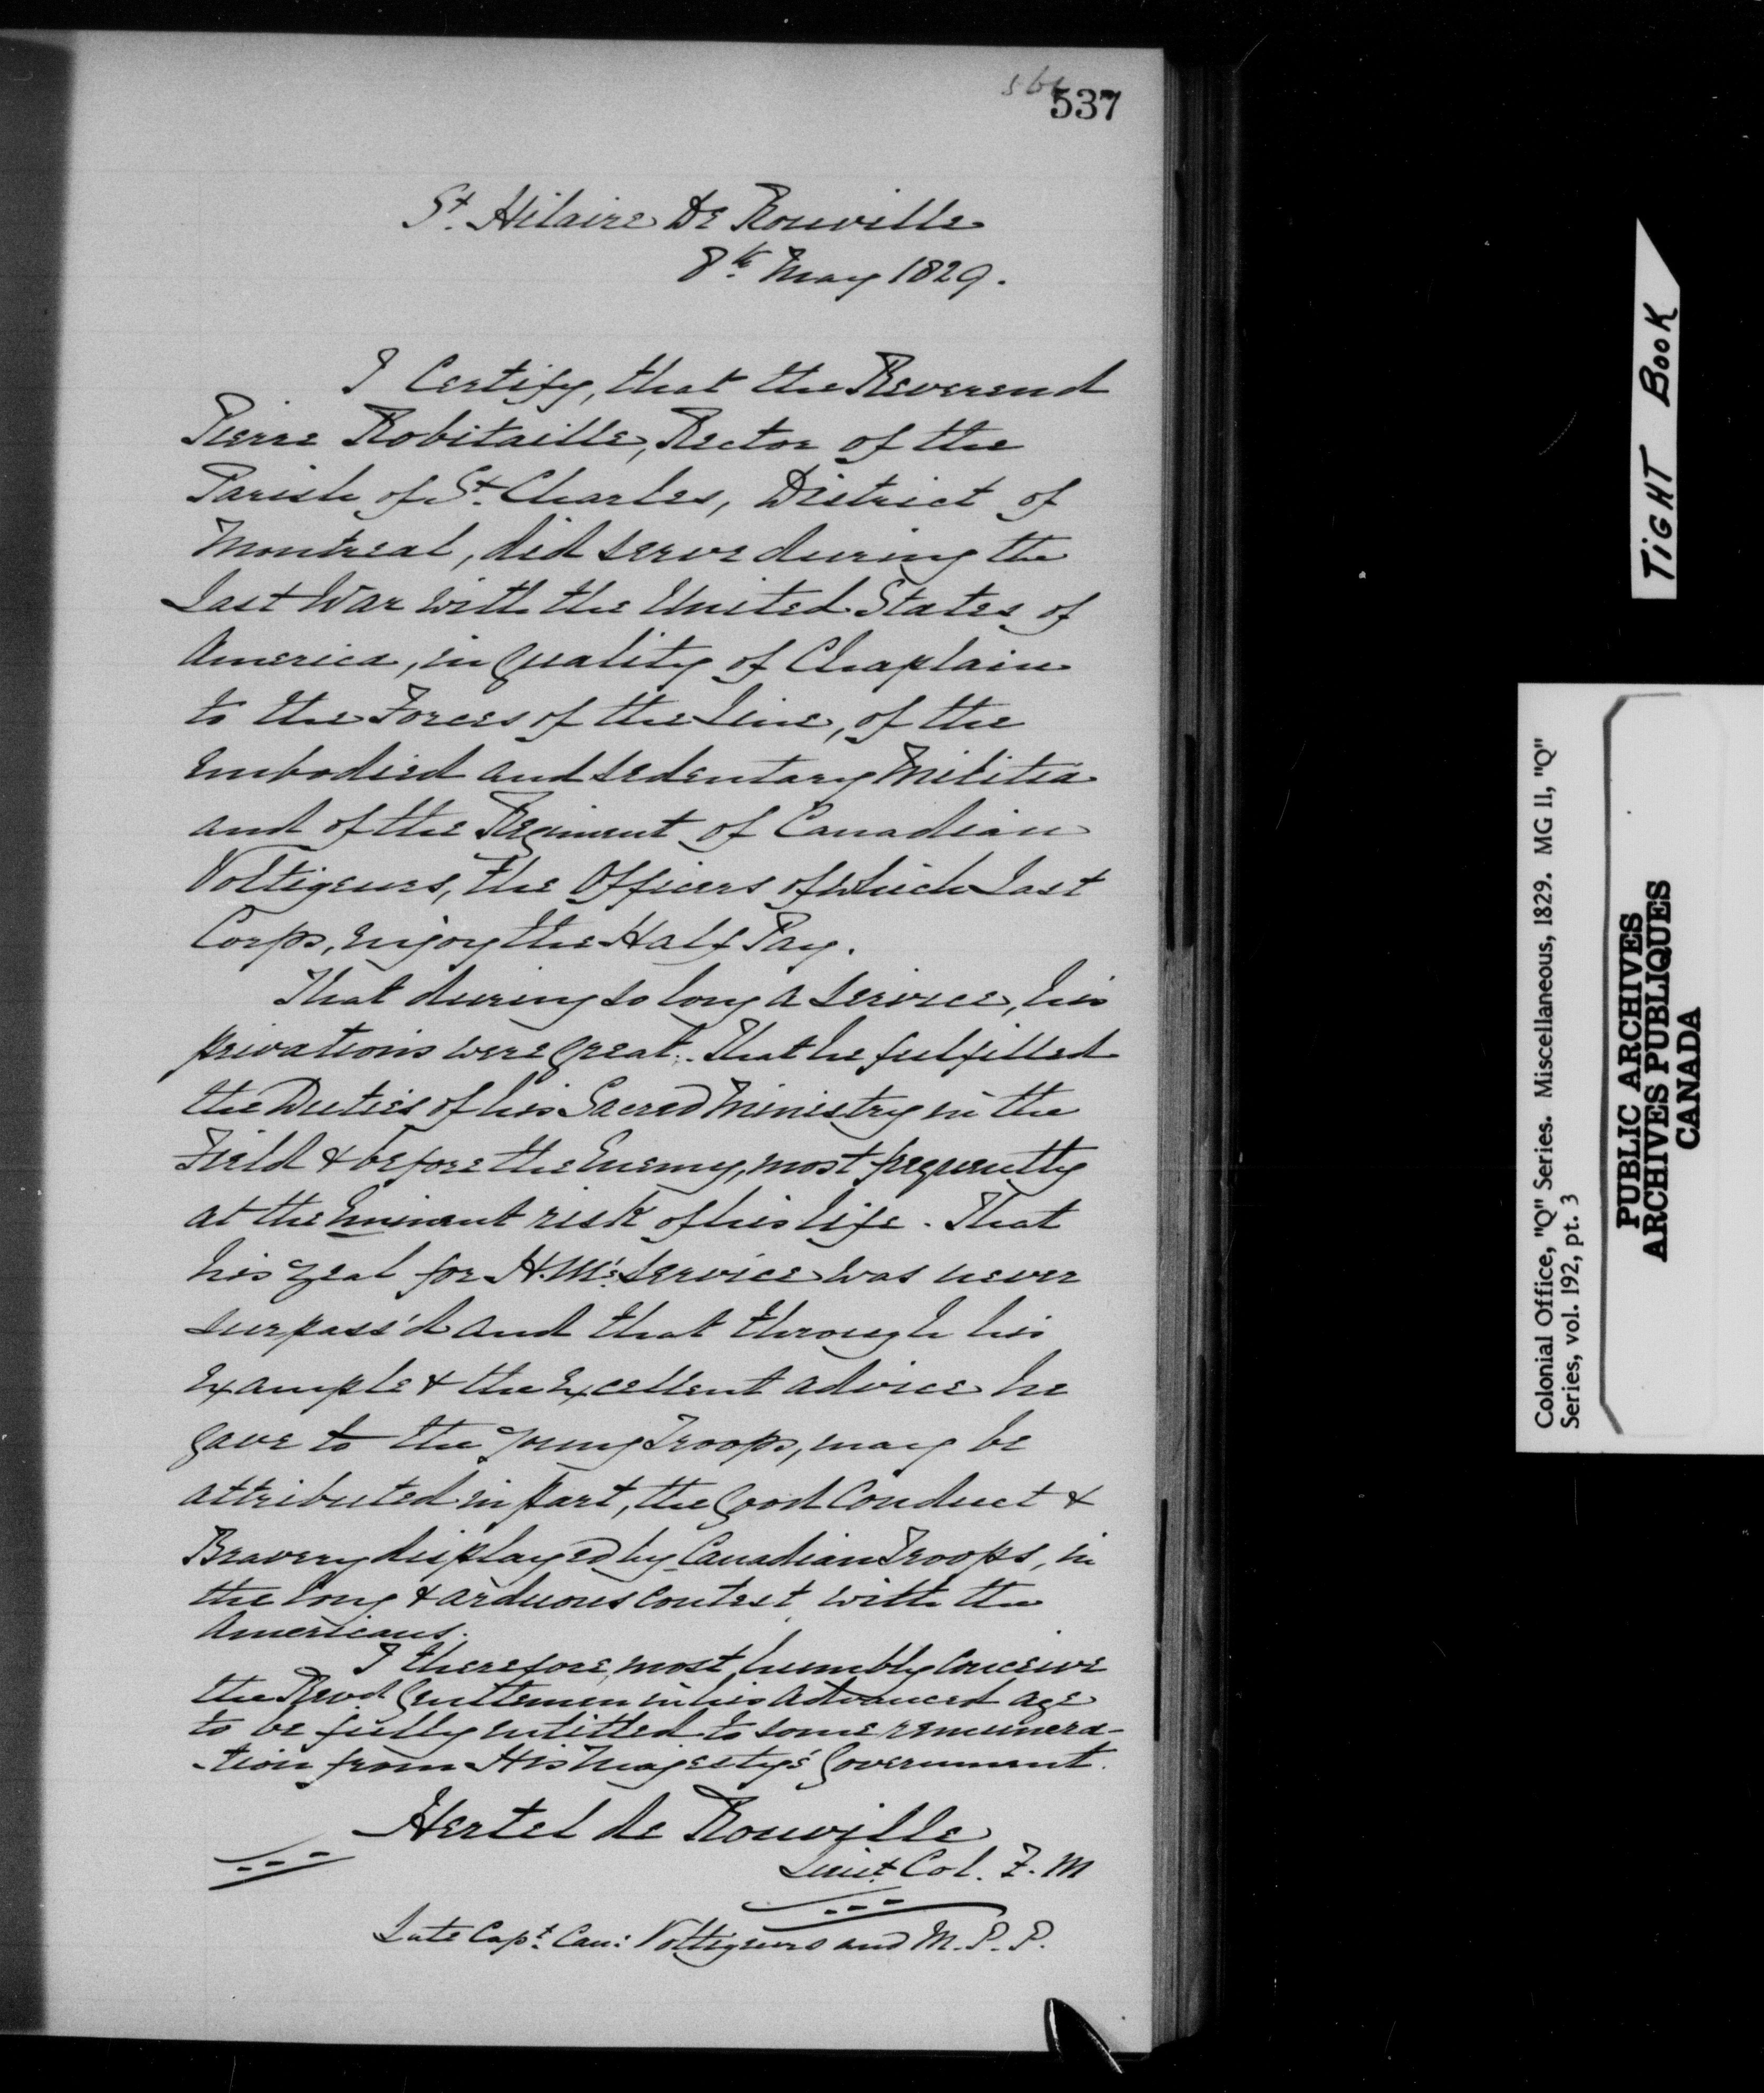 537
St. Hilaire De Rouville
8th May 1829.
I Certify, that the Reverend
Pierre Robitaille, Rector of the
Parish of St. Charles, District of
Montreal, did serve during the
last War with the United States of
America, in quality of Chaplain
to the Forces of the Line, of the
Embodied and Sedentary Militia
and of the Regiment of Canadian
Voltigeurs, the Officers of which last
Corps, enjoy the Half Pay.
That during so long a Service, his
privations were great. That he fulfilled
the Duties of his Sacred Ministry in the
Field & before the Enemy, most frequently
at the Eminent risk of his life. That
his zeal for H.M's. Service was never
surpass'd and that through his
Example & the Excellent advice he
gave to the young Troops, may be
attributed in part, the good Conduct &
Bravery displayed by Canadian Troops, in
the long & arduous contest with the
Americans.
I therefore most humbly Conceive
the Revd. Gentlemen in his Advanced age
to be fully entitled to some remunera-
-tion from His Majesty's Government.
Hertel de Rouville
Lieut. Col. F. M
Late Capt. Can: Voltigeurs and M.P.P.
TIGHT BOOK
Colonial Office, "Q" Series. Miscellaneous, 1829. MG 11, "Q"
Series, vol. 192, pt. 3
PUBLIC ARCHIVES
ARCHIVES PUBLIQUES
CANADA